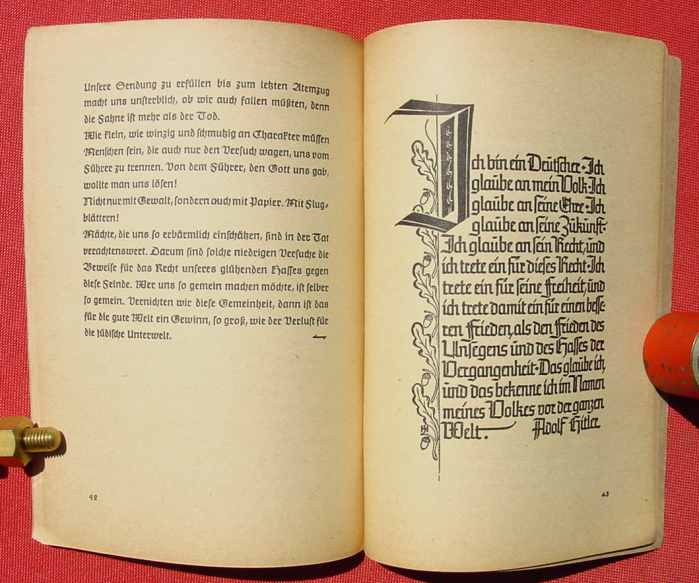 Unsere Sendung zu erfüllen bis zum letzten Atemzug
macht uns unsterblich, ob wir auch fallen müßten, denn
die Fahne ist mehr als der Tod.
Wie klein, wie winzig und schmutzig an Charakter müssen
Menschen sein, die auch nur den Versuch wagen, uns vom
Führer zu trennen. Von dem Führer, den Gott uns gab,
wollte man uns lösen!
Nicht nur mit Gewalt, sondern auch mit Papier. Mit Flug-
blättern!
Mächte, die uns so erbärmlich einschätzen, sind in der Tat
verachtenswert. Darum sind solche niedrigen Versuche die
Beweise für das Recht unseres glühenden Hasses gegen
diese Feinde. Wer uns so gemein machen möchte, ist selber
so gemein. Vernichten wir diese Gemeinheit, dann ist das
für die gute Welt ein Gewinn, so groß, wie der Verlust für
die jüdische Unterwelt.
42
Ich bin ein Deutscher · Ich
glaube an mein Volk · Ich
glaube an seine Ehre · Ich
glaube an seine Zukunft ·
Ich glaube an sein Recht, und
ich trete ein für dieses Recht · Ich
trete ein für seine Freiheit, und
ich trete damit ein für einen besse-
ren Frieden, als den Frieden des
Unsegens und des Hasses der
Vergangenheit · Das glaube ich,
und das bekenne ich im Namen
meines Volkes vor der ganzen
Welt.
Adolf Hitler
43